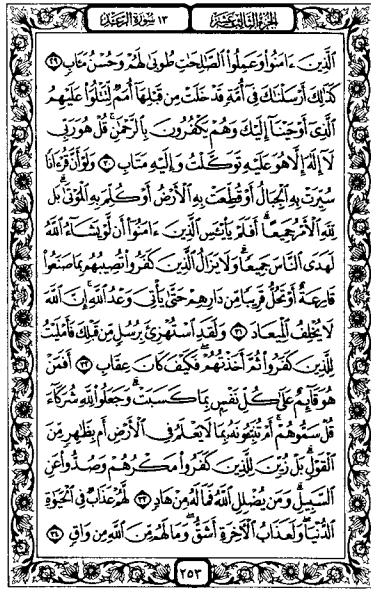 الجزء الثالث عشر ١٣ سورة الرعد
الَّذِينَ ءَامَنُوا وَعَمِلُوا الصَّالِحَاتِ طُوبَى لَهُمْ وَحُسْنُ مَـَٔابٍ ٢٩
كَذَٰلِكَ أَرْسَلْنَاكَ فِي أُمَّةٍ قَدْ خَلَتْ مِن قَبْلِهَا أُمَمٌ لِّتَتْلُوَا عَلَيْهِمُ
الَّذِي أَوْحَيْنَا إِلَيْكَ وَهُمْ يَكْفُرُونَ بِالرَّحْمَٰنِ قُلْ هُوَ رَبِّي
لَا إِلَٰهَ إِلَّا هُوَ عَلَيْهِ تَوَكَّلْتُ وَإِلَيْهِ مَتَابِ ٣٠ وَلَوْ أَنَّ قُرْءَانًا
سُيِّرَتْ بِهِ الْجِبَالُ أَوْ قُطِّعَتْ بِهِ الْأَرْضُ أَوْ كُلِّمَ بِهِ الْمَوْتَىٰ بَل
لِّلَّهِ الْأَمْرُ جَمِيعًا أَفَلَمْ يَا۟يْـَٔسِ الَّذِينَ ءَامَنُوا أَن لَّوْ يَشَاءُ اللَّهُ
لَهَدَى النَّاسَ جَمِيعًا وَلَا يَزَالُ الَّذِينَ كَفَرُوا تُصِيبُهُم بِمَا صَنَعُوا
قَارِعَةٌ أَوْ تَحُلُّ قَرِيبًا مِّن دَارِهِمْ حَتَّىٰ يَأْتِيَ وَعْدُ اللَّهِ إِنَّ اللَّهَ
لَا يُخْلِفُ الْمِيعَادَ ٣١ وَلَقَدِ اسْتُهْزِئَ بِرُسُلٍ مِّن قَبْلِكَ فَأَمْلَيْتُ
لِلَّذِينَ كَفَرُوا ثُمَّ أَخَذْتُهُمْ فَكَيْفَ كَانَ عِقَابِ ٣٢ أَفَمَنْ
هُوَ قَائِمٌ عَلَىٰ كُلِّ نَفْسٍ بِمَا كَسَبَتْ وَجَعَلُوا لِلَّهِ شُرَكَاءَ
قُلْ سَمُّوهُمْ أَمْ تُنَبِّـُٔونَهُ بِمَا لَا يَعْلَمُ فِي الْأَرْضِ أَم بِظَاهِرٍ مِّنَ
الْقَوْلِ بَلْ زُيِّنَ لِلَّذِينَ كَفَرُوا مَكْرُهُمْ وَصُدُّوا عَنِ
السَّبِيلِ وَمَن يُضْلِلِ اللَّهُ فَمَا لَهُ مِنْ هَادٍ ٣٣ لَّهُمْ عَذَابٌ فِي الْحَيَاةِ
الدُّنْيَا وَلَعَذَابُ الْآخِرَةِ أَشَقُّ وَمَا لَهُم مِّنَ اللَّهِ مِن وَاقٍ ٣٤
٢٥٣